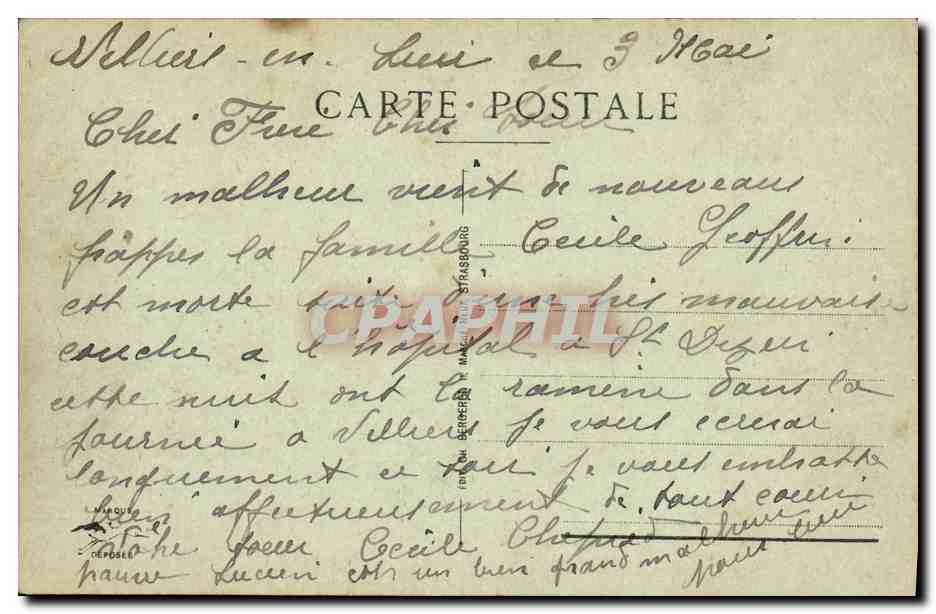 Villiers-en-Lieu le 3 Mai
CARTE POSTALE
Cher Frere Cher Soeur
Un malheur vient de nouveaus
frappes la famille Cecile Geoffrin.
est morte suite d'une tres mauvaise
couche a l'hôpital a St Dizier
cette nuit ont la ramene dans la
journée a Villiers je vous ecrirai
longuement ce soir je vous embrasse
bien affectueusement de tout coeur
Votre soeur Cecile
pauvre Lucien cest un bien grand malheur
pour lui
EDITION BERGERET MARQUE REX STRASBOURG
MARQUE
DEPOSÉE
CPAPHIL